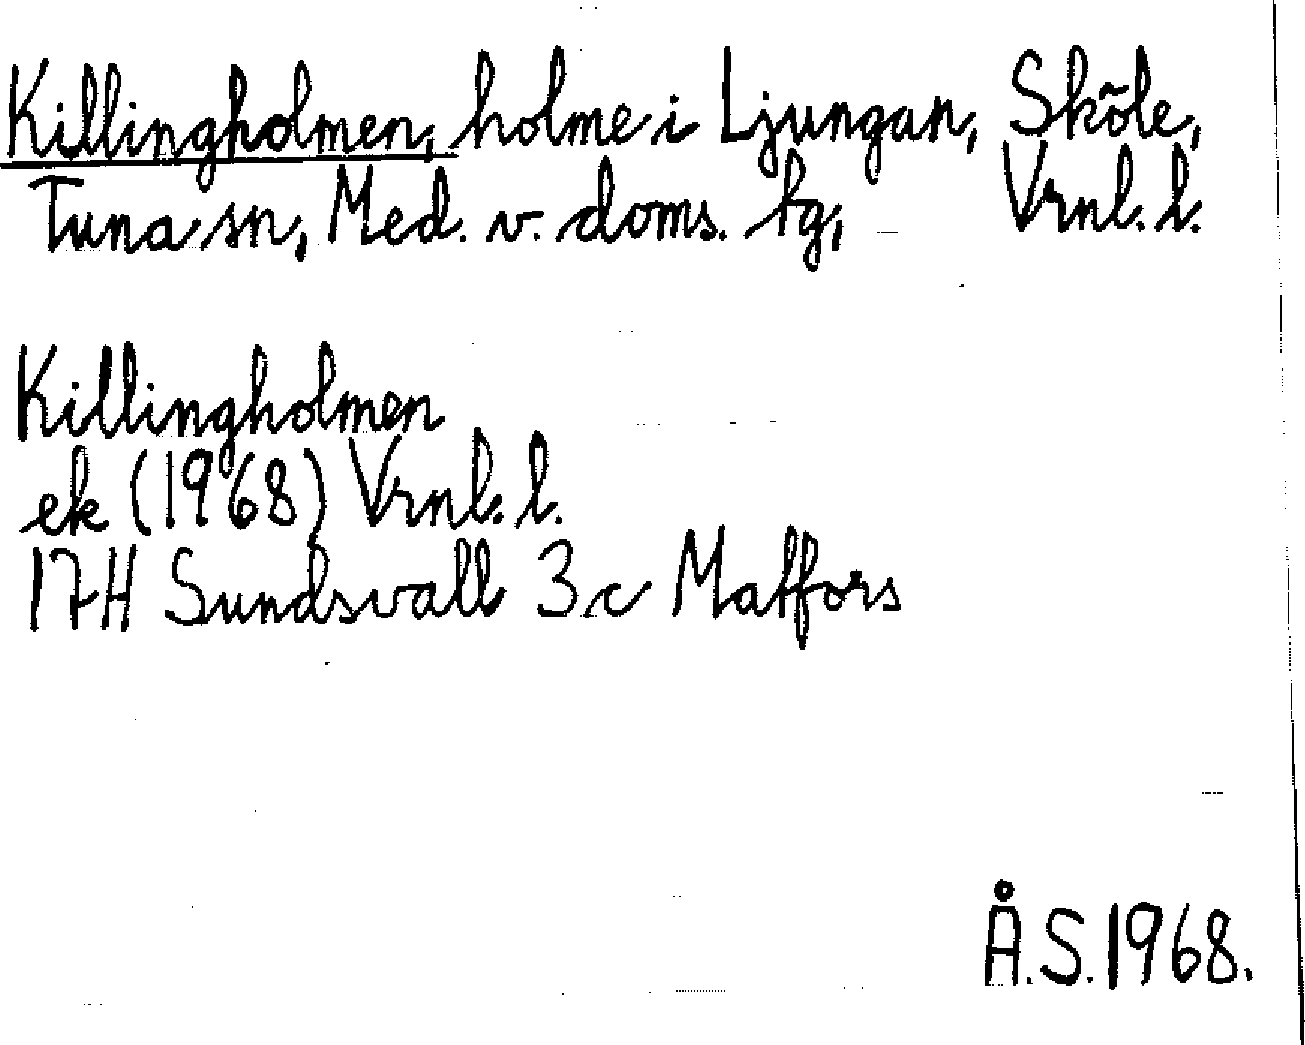 Killingholmen, holme i Ljungan, Sköle,
Tuna sn, Med. v. doms. tg, Vrnl. l.
Killingholmen
ek (1968) Vrnl. l.
17H Sundsvall 3c Matfors
Å.S. 1968.